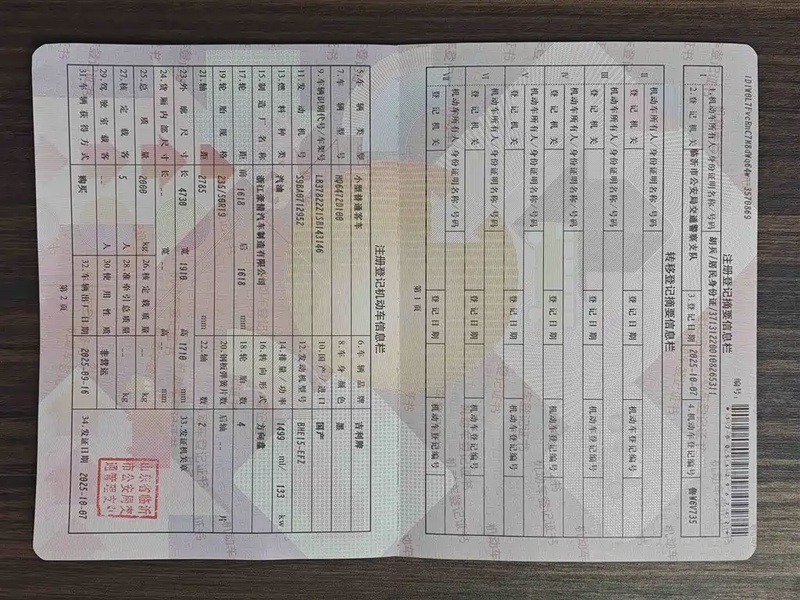 注册登记摘要信息栏
编号:
Ⅰ
1.机动车所有人/身份证明名称/号码
2.登记机关 临沂市公安局交通警察支队
3.登记日期 2025-10-07
4.机动车登记编号 鲁W6V735
转移登记摘要信息栏
Ⅱ
机动车所有人/身份证明名称/号码
登记机关 登记日期 机动车登记编号
Ⅲ
机动车所有人/身份证明名称/号码
登记机关 登记日期 机动车登记编号
Ⅳ
机动车所有人/身份证明名称/号码
登记机关 登记日期 机动车登记编号
Ⅴ
机动车所有人/身份证明名称/号码
登记机关 登记日期 机动车登记编号
Ⅵ
机动车所有人/身份证明名称/号码
登记机关 登记日期 机动车登记编号
Ⅶ
机动车所有人/身份证明名称/号码
登记机关 登记日期 机动车登记编号
第1页
注册登记机动车信息栏
5.车辆类型 小型普通客车 6.车辆品牌 吉利牌
7.车辆型号 8.车身颜色 黑
9.车辆识别代号/车架号 10.国产/进口 国产
11.发动机号 12.发动机型号 BHE15-EFZ
13.燃料种类 汽油 14.排量/功率 1499 ml/ 133 kw
15.制造厂名称 浙江豪情汽车制造有限公司 16.转向形式 方向盘
17.轮距 前 1618 后 1618 mm 18.轮胎数 4
19.轮胎规格 235/50R19 20.钢板弹簧片数 后轴 -- 片
21.轴距 2785 mm 22.轴数 2
23.外廓尺寸 长 4730 宽 1910 高 1710 mm 33.发证机关章
24.货厢内部尺寸 长 -- 宽 -- 高 -- mm
25.总质量 2000 kg 26.核定载质量 -- kg
27.核定载客 5 人 28.准牵引总质量 -- kg
29.驾驶室载客 -- 人 30.使用性质 非营运
31.车辆获得方式 购买 32.车辆出厂日期 2025-09-16 34.发证日期 2025-10-07
第2页